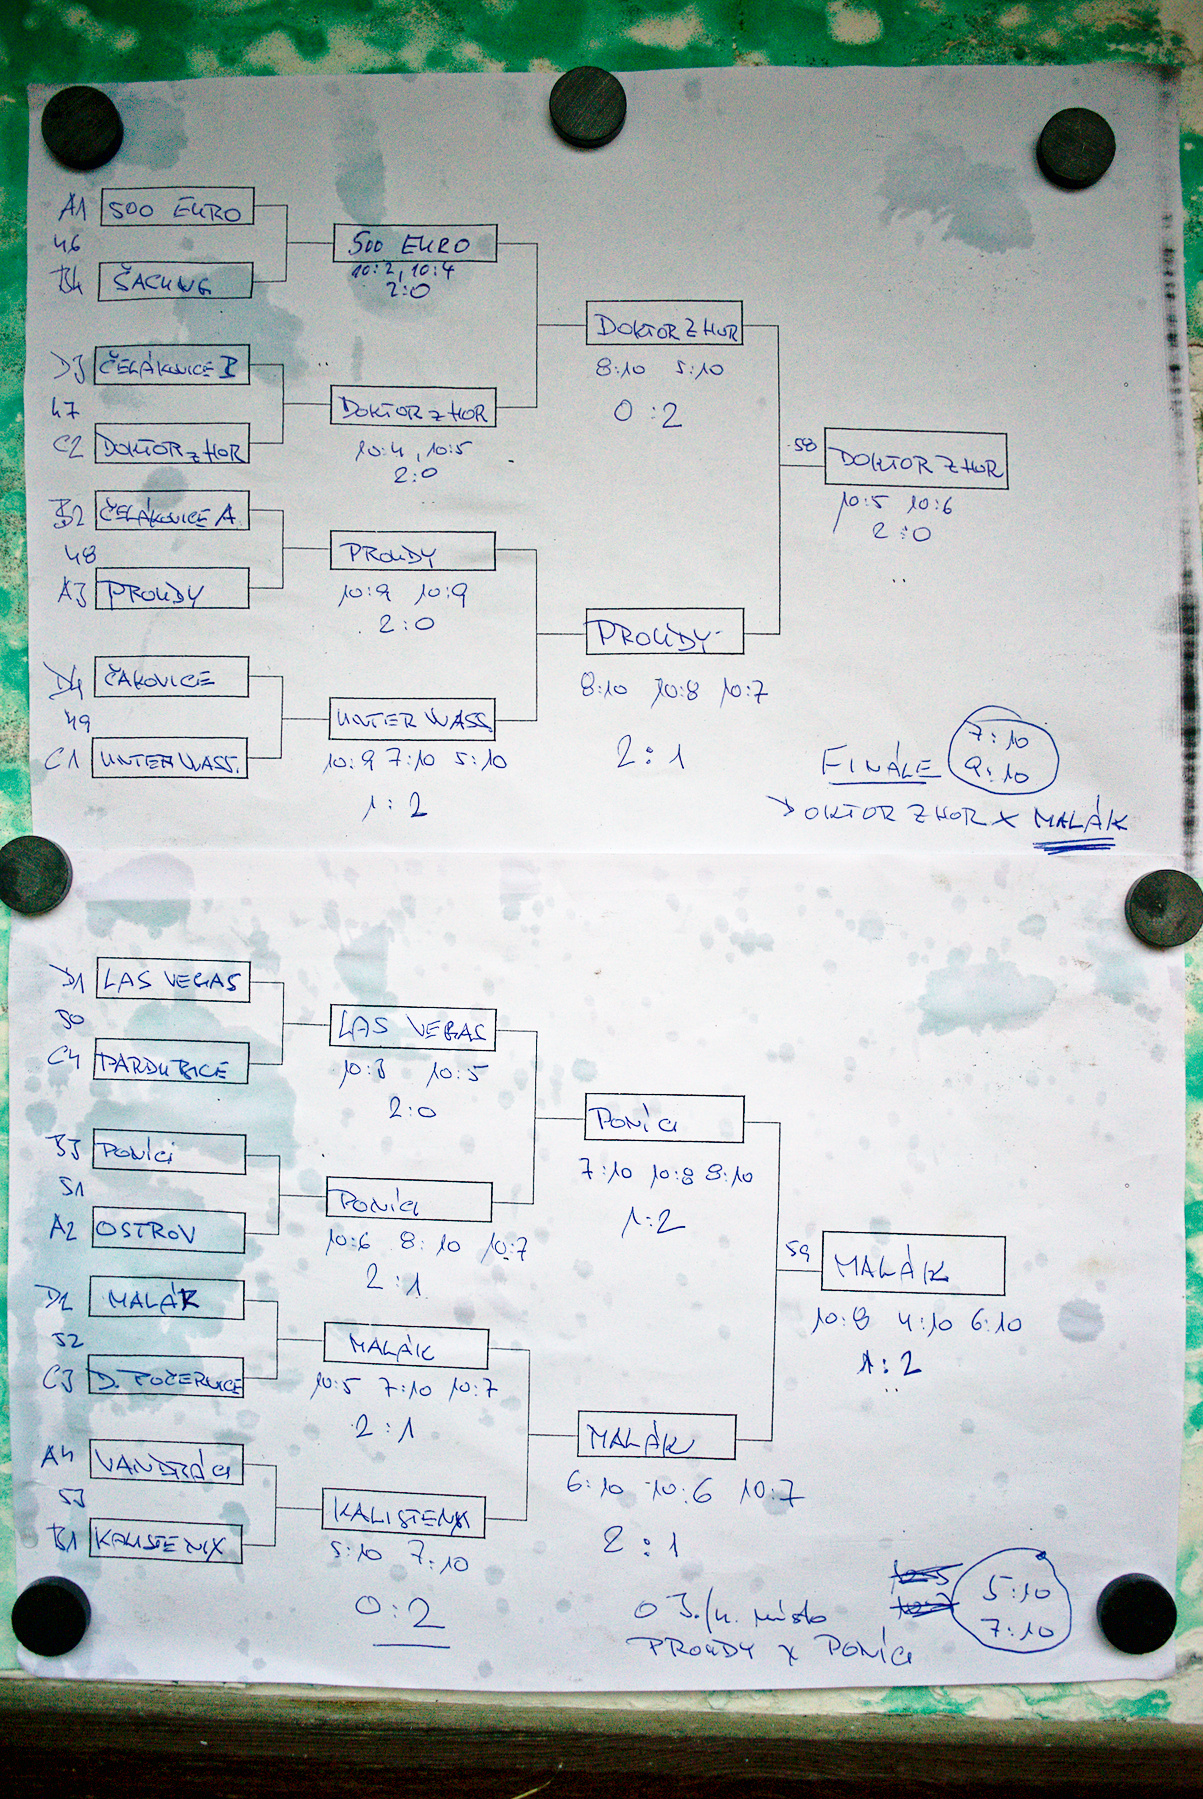 A1 500 EURO
46
B4 ŠACUNG
500 EURO
10:2, 10:4
2:0
D3 ČELÁKOVICE B
47
C2 DOKTOR Z HOR
DOKTOR Z HOR
10:4, 10:5
2:0
DOKTOR Z HOR
8:10 5:10
0:2
B2 ČELÁKOVICE A
48
A3 PROUDY
PROUDY
10:9 10:9
2:0
D4 ČAKOVICE
49
C1 UNTER WASS.
UNTER WASS.
10:9 7:10 5:10
1:2
PROUDY
8:10 10:8 10:7
2:1
58
DOKTOR Z HOR
10:5 10:6
2:0
FINÁLE 7:10
9:10
DOKTOR Z HOR X MALÁK
D1 LAS VEGAS
50
C4 PARDUBICE
LAS VEGAS
10:3 10:5
2:0
B3 PONÍCI
51
A2 OSTROV
PONÍCI
10:6 8:10 10:7
2:1
PONÍCI
7:10 10:8 8:10
1:2
D2 MALÁK
52
C3 D. POČERNICE
MALÁK
10:5 7:10 10:7
2:1
A4 VANDRÁCI
53
B1 KALISTENIX
KALISTENIX
5:10 7:10
0:2
MALÁK
6:10 10:6 10:7
2:1
59
MALÁK
10:8 4:10 6:10
1:2
O 3./4. místo
PROUDY X PONÍCI
5:10
7:10